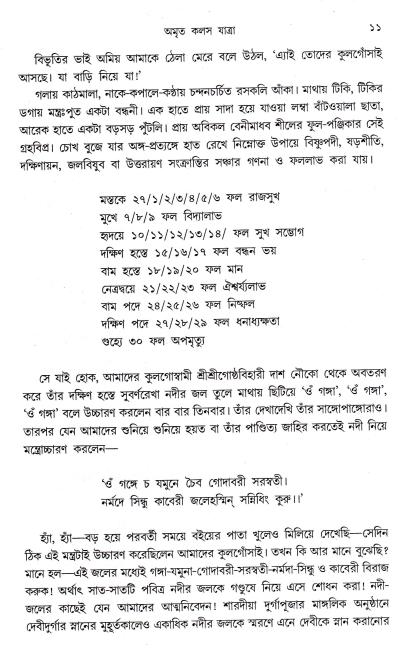 অমৃত কলস যাত্রা ১১
বিভূতির ভাই অমিয় আমাকে ঠেলা মেরে বলে উঠল, ‘এ্যাই তোদের কুলগোঁসাই
আসছে। যা বাড়ি নিয়ে যা!’
গলায় কাঠমালা, নাকে-কপালে-কণ্ঠায় চন্দনচর্চিত রসকলি আঁকা। মাথায় টিকি, টিকির
ডগায় মন্ত্রঃপুত একটা বন্ধনী। এক হাতে প্রায় সাদা হয়ে যাওয়া লম্বা বাঁটওয়ালা ছাতা,
আরেক হাতে একটা বড়সড় পুঁটলি। প্রায় অবিকল বেনীমাধব শীলের ফুল-পঞ্জিকার সেই
গ্রহবিপ্র। চোখ বুজে যার অঙ্গ-প্রত্যঙ্গে হাত রেখে নিম্নোক্ত উপায়ে বিষ্ণুপদী, ষড়শীতি,
দক্ষিণায়ন, জলবিষুব বা উত্তরায়ণ সংক্রান্তির সঞ্চার গণনা ও ফললাভ করা যায়।
মস্তকে ২৭/১/২/৩/৪/৫/৬ ফল রাজসুখ
মুখে ৭/৮/৯ ফল বিদ্যালাভ
হৃদয়ে ১০/১১/১২/১৩/১৪/ ফল সুখ সম্ভোগ
দক্ষিণ হস্তে ১৫/১৬/১৭ ফল বন্ধন ভয়
বাম হস্তে ১৮/১৯/২০ ফল মান
নেত্রদ্বয়ে ২১/২২/২৩ ফল ঐশ্বর্য্যলাভ
বাম পদে ২৪/২৫/২৬ ফল নিষ্ফল
দক্ষিণ পদে ২৭/২৮/২৯ ফল ধনাধ্যক্ষতা
গুহ্যে ৩০ ফল অপমৃত্যু
সে যাই হোক, আমাদের কুলগোস্বামী শ্রীশ্রীগোষ্ঠবিহারী দাশ নৌকো থেকে অবতরণ
করে তাঁর দক্ষিণ হস্তে সুবর্ণরেখা নদীর জল তুলে মাথায় ছিটিয়ে ‘ওঁ গঙ্গা’, ‘ওঁ গঙ্গা’,
‘ওঁ গঙ্গা’ বলে উচ্চারণ করলেন বার বার তিনবার। তাঁর দেখাদেখি তাঁর সাঙ্গোপাঙ্গোরাও।
তারপর যেন আমাদের শুনিয়ে শুনিয়ে হয়ত বা তাঁর পাণ্ডিত্য জাহির করতেই নদী নিয়ে
মন্ত্রোচ্চারণ করলেন—
‘ওঁ গঙ্গে চ যমুনে চৈব গোদাবরী সরস্বতী।
নর্মদে সিন্ধু কাবেরী জলেহস্মিন্ সন্নিধিং কুরু।।’
হ্যাঁ, হ্যাঁ—বড় হয়ে পরবর্তী সময়ে বইয়ের পাতা খুলেও মিলিয়ে দেখেছি—সেদিন
ঠিক এই মন্ত্রটাই উচ্চারণ করেছিলেন আমাদের কুলগোঁসাই। তখন কি আর মানে বুঝেছি?
মানে হল—এই জলের মধ্যেই গঙ্গা-যমুনা-গোদাবরী-সরস্বতী-নর্মদা-সিন্ধু ও কাবেরী বিরাজ
করুক! অর্থাৎ সাত-সাতটি পবিত্র নদীর জলকে গণ্ডুষে নিয়ে এসে শোধন করা! নদী-
জলের কাছেই যেন আমাদের আত্মনিবেদন! শারদীয়া দুর্গাপূজার মাঙ্গলিক অনুষ্ঠানে
দেবীদুর্গার স্নানের মুহূর্তকালেও একাধিক নদীর জলকে স্মরণে এনে দেবীকে স্নান করানোর